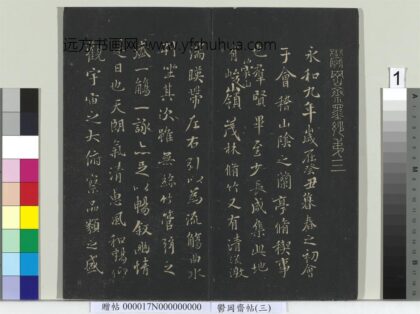 远方书画网 www.yfshuhua.com
鬱岡齋墨妙第三
永和九年歲在癸丑暮春之初會
于會稽山陰之蘭亭脩禊事
也羣賢畢至少長咸集此地
有崇山峻嶺茂林脩竹又有清流激
湍暎帶左右引以為流觴曲水
列坐其次雖無絲竹管弦之
盛一觴一詠亦足以暢叙幽情
是日也天朗氣清惠風和暢仰
觀宇宙之大俯察品類之盛
1
贈帖 000017N000000000
鬱岡齋帖(三)